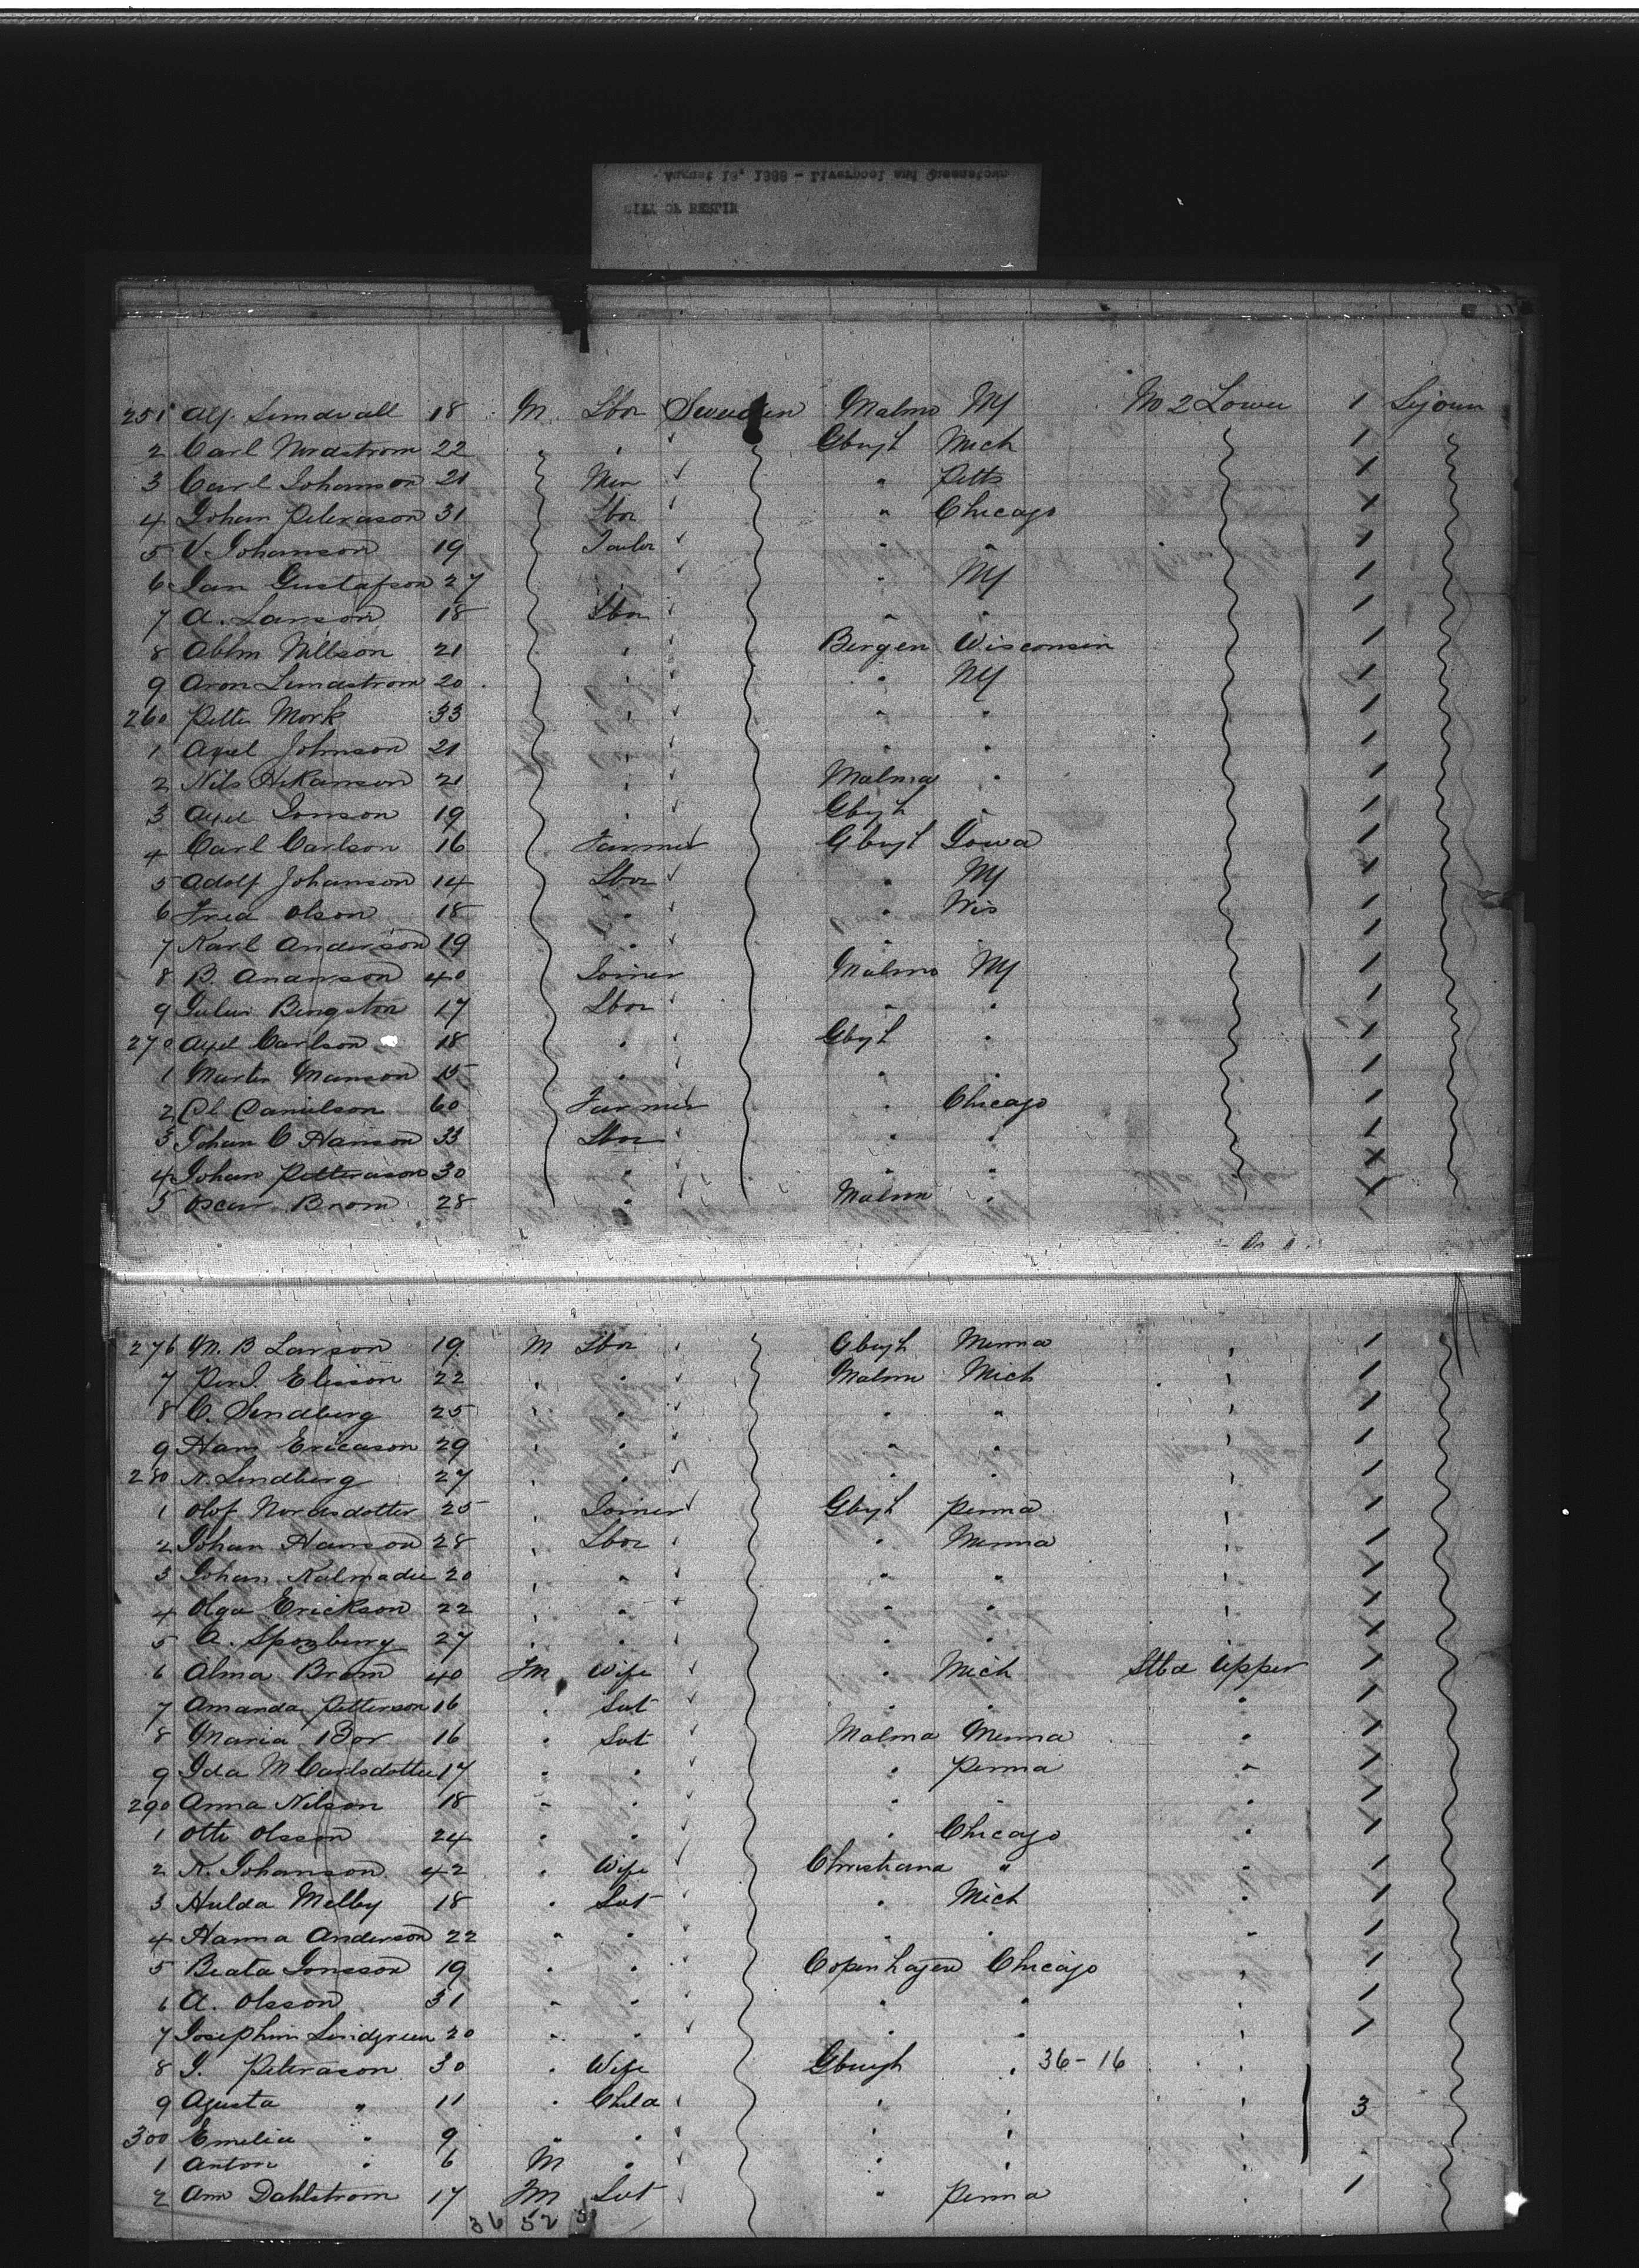 August 18, 1888 - Liverpool and Queenstown
CITY OF BERLIN
251 Alf. Lindvall 18 M Lbor Sweden Malmo NY No 2 Lower 1 Sejourn
2 Carl Nordstrom 22 " Gburgh Mich 1
3 Carl Johanson 21 Min " Pitts 1
4 Johan Peterason 31 Lbor " Chicago 1
5 V. Johanson 19 Tailor " " 1
6 Jan Gustafson 27 " " NY 1
7 A. Larson 18 Lbor " " 1
8 Abhm Nillson 21 " Bergen Wisconsin 1
9 Aron Lindstrom 20 " " NY 1
260 Petter Mork 33 " " " 1
1 Axel Johnson 21 " " " 1
2 Nils Hkanson 21 " Malmo " 1
3 Axel Jonson 19 " Gbgh " 1
4 Carl Carlson 16 Farmer Gburgh Iowa 1
5 Adolf Johanson 14 Lbor " NY 1
6 Fred Olson 18 " " Wis 1
7 Karl Anderson 19 " " " 1
8 B. Ananson 40 Joiner Malmo NY 1
9 Julius Bengston 17 Lbor " " 1
270 Axel Carlson 18 " Gbgh " 1
1 Martin Manson 15 " " " 1
2 Danielson 60 Farmer " Chicago 1
3 Johan C Hanson 33 Lbor " " 1
4 Johan Petterason 30 " " " 1
5 Oscar Brom 28 " Malmo " 1
276 M. B Larson 19 M Lbor Gburgh Minna " 1
7 Per J. Elisson 22 " " Malmo Mich " 1
8 C. Sendberg 25 " " " " " 1
9 Hans Ericason 29 " " " " " 1
280 N. Lindberg 27 " " " " " 1
1 Olof Nordsdotter 25 " Joiner Gbgh Penna " 1
2 Johan Hanson 28 " Lbor " Minna " 1
3 Johan Kalmadie 20 " " " " " 1
4 Olga Erickson 22 " " " " " 1
5 A. Spozburry 27 " " " " " 1
6 Alma Brom 40 Fm Wife " Mich Stbd Upper 1
7 Amanda Petterson 16 " Svt " " " 1
8 Maria Bor 16 " Svt Malmo Minna " 1
9 Ida M Carlsdotter 17 " " " Penna " 1
290 Anna Nilson 18 " " " " " 1
1 Otte Olsson 24 " " " Chicago " 1
2 K. Johanson 42 " Wife Christiana " " 1
3 Hulda Melby 18 " Svt " Mich " 1
4 Hanna Anderson 22 " " " " " 1
5 Beata Jonsson 19 " " Copenhagen Chicago " 1
6 A. Olsson 31 " " " " " 1
7 Josephim Lindgreen 20 " " " " " 1
8 J. Peterason 30 " Wife Gburgh " 36-16 "
9 Agusta " 11 " Child " " " 3
300 Emelia " 9 " " " " "
1 Anton " 6 M " " " "
2 Ann Dahlstrom 17 Fm Svt " Penna " 1
36 52